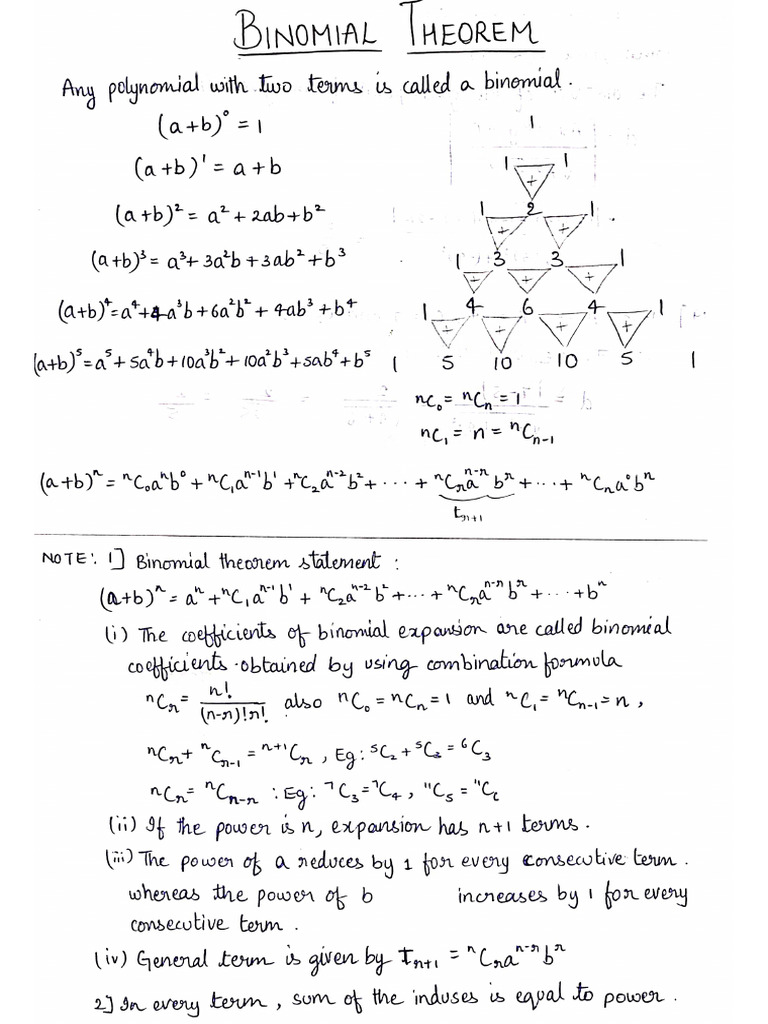 BINOMIAL THEOREM
Any polynomial with two terms is called a binomial.
(a+b)⁰ = 1
1
(a+b)¹ = a+b
1 1
+
(a+b)² = a² + 2ab + b²
1 2 1
+ +
(a+b)³ = a³ + 3a²b + 3ab² + b³
1 3 3 1
+ + +
(a+b)⁴ = a⁴ + 4a³b + 6a²b² + 4ab³ + b⁴
1 4 6 4 1
+ + + +
(a+b)⁵ = a⁵ + 5a⁴b + 10a³b² + 10a²b³ + 5ab⁴ + b⁵
1 5 10 10 5 1
nC₀ = ⁿCₙ = 1
nC₁ = n = ⁿCₙ₋₁
(a+b)ⁿ = ⁿC₀aⁿb⁰ + ⁿC₁aⁿ⁻¹b¹ + ⁿC₂aⁿ⁻²b² + ... + ⁿCᵣaⁿ⁻ʳbʳ + ... + ⁿCₙa⁰bⁿ
tᵣ₊₁
NOTE: 1] Binomial theorem statement :
(a+b)ⁿ = aⁿ + ⁿC₁aⁿ⁻¹b¹ + ⁿC₂aⁿ⁻²b² + ... + ⁿCᵣaⁿ⁻ʳbʳ + ... + bⁿ
(i) The coefficients of binomial expansion are called binomial
coefficients obtained by using combination formula
ⁿCᵣ = n!/(n-r)!r! also ⁿC₀ = ⁿCₙ = 1 and ⁿC₁ = ⁿCₙ₋₁ = n,
ⁿCᵣ + ⁿCᵣ₋₁ = ⁿ⁺¹Cᵣ , Eg: ⁵C₂ + ⁵C₃ = ⁶C₃
ⁿCᵣ = ⁿCₙ₋ᵣ : Eg: ⁷C₃ = ⁷C₄ , ¹¹C₅ = ¹¹C₆
(ii) If the power is n, expansion has n+1 terms.
(iii) The power of a reduces by 1 for every consecutive term.
whereas the power of b increases by 1 for every
consecutive term.
(iv) General term is given by Tᵣ₊₁ = ⁿCᵣaⁿ⁻ʳbʳ
2] In every term, sum of the induses is equal to power.